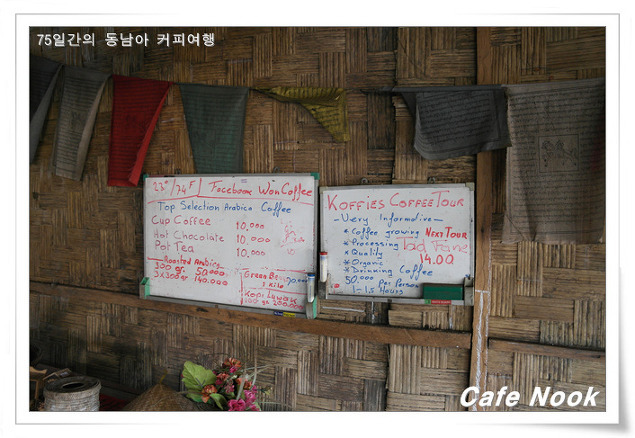 75일간의 동남아 커피여행
23° / 74 F / Facebook WonCoffee
Top Selection Arabica Coffee
Cup Coffee 10,000
Hot Chocolate 10,000
Pot Tea 10,000
Roasted Arabica
300 gr. 50.000
3x300 gr 140.000
Green Be 70.000
1 Kilo
Kopi Luwak
100 gr 200.000
KOFFIES COFFEE TOUR
- Very Informative -
* Coffee growing
* Processing
* Quality
* Organic
* Drinking Coffee
NEXT TOUR
Tad Fane
14.00
50.000 Per Person
1-1.5 Hours
Cafe Nook